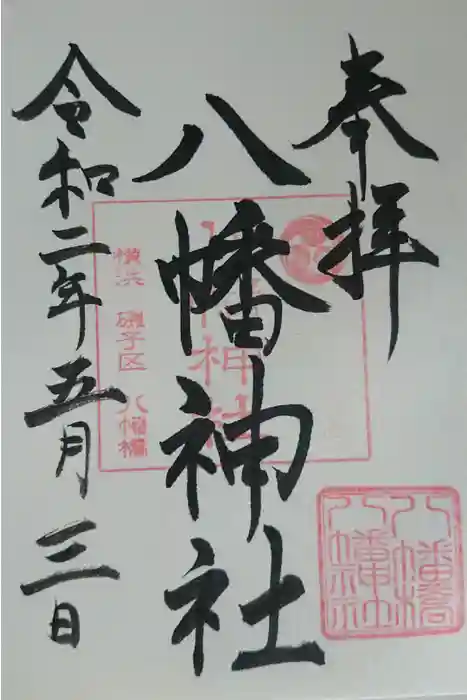 奉拝
八幡神社
八幡神社
横浜 磯子区 八幡橋
令和二年五月三日
八幡橋
八幡神社